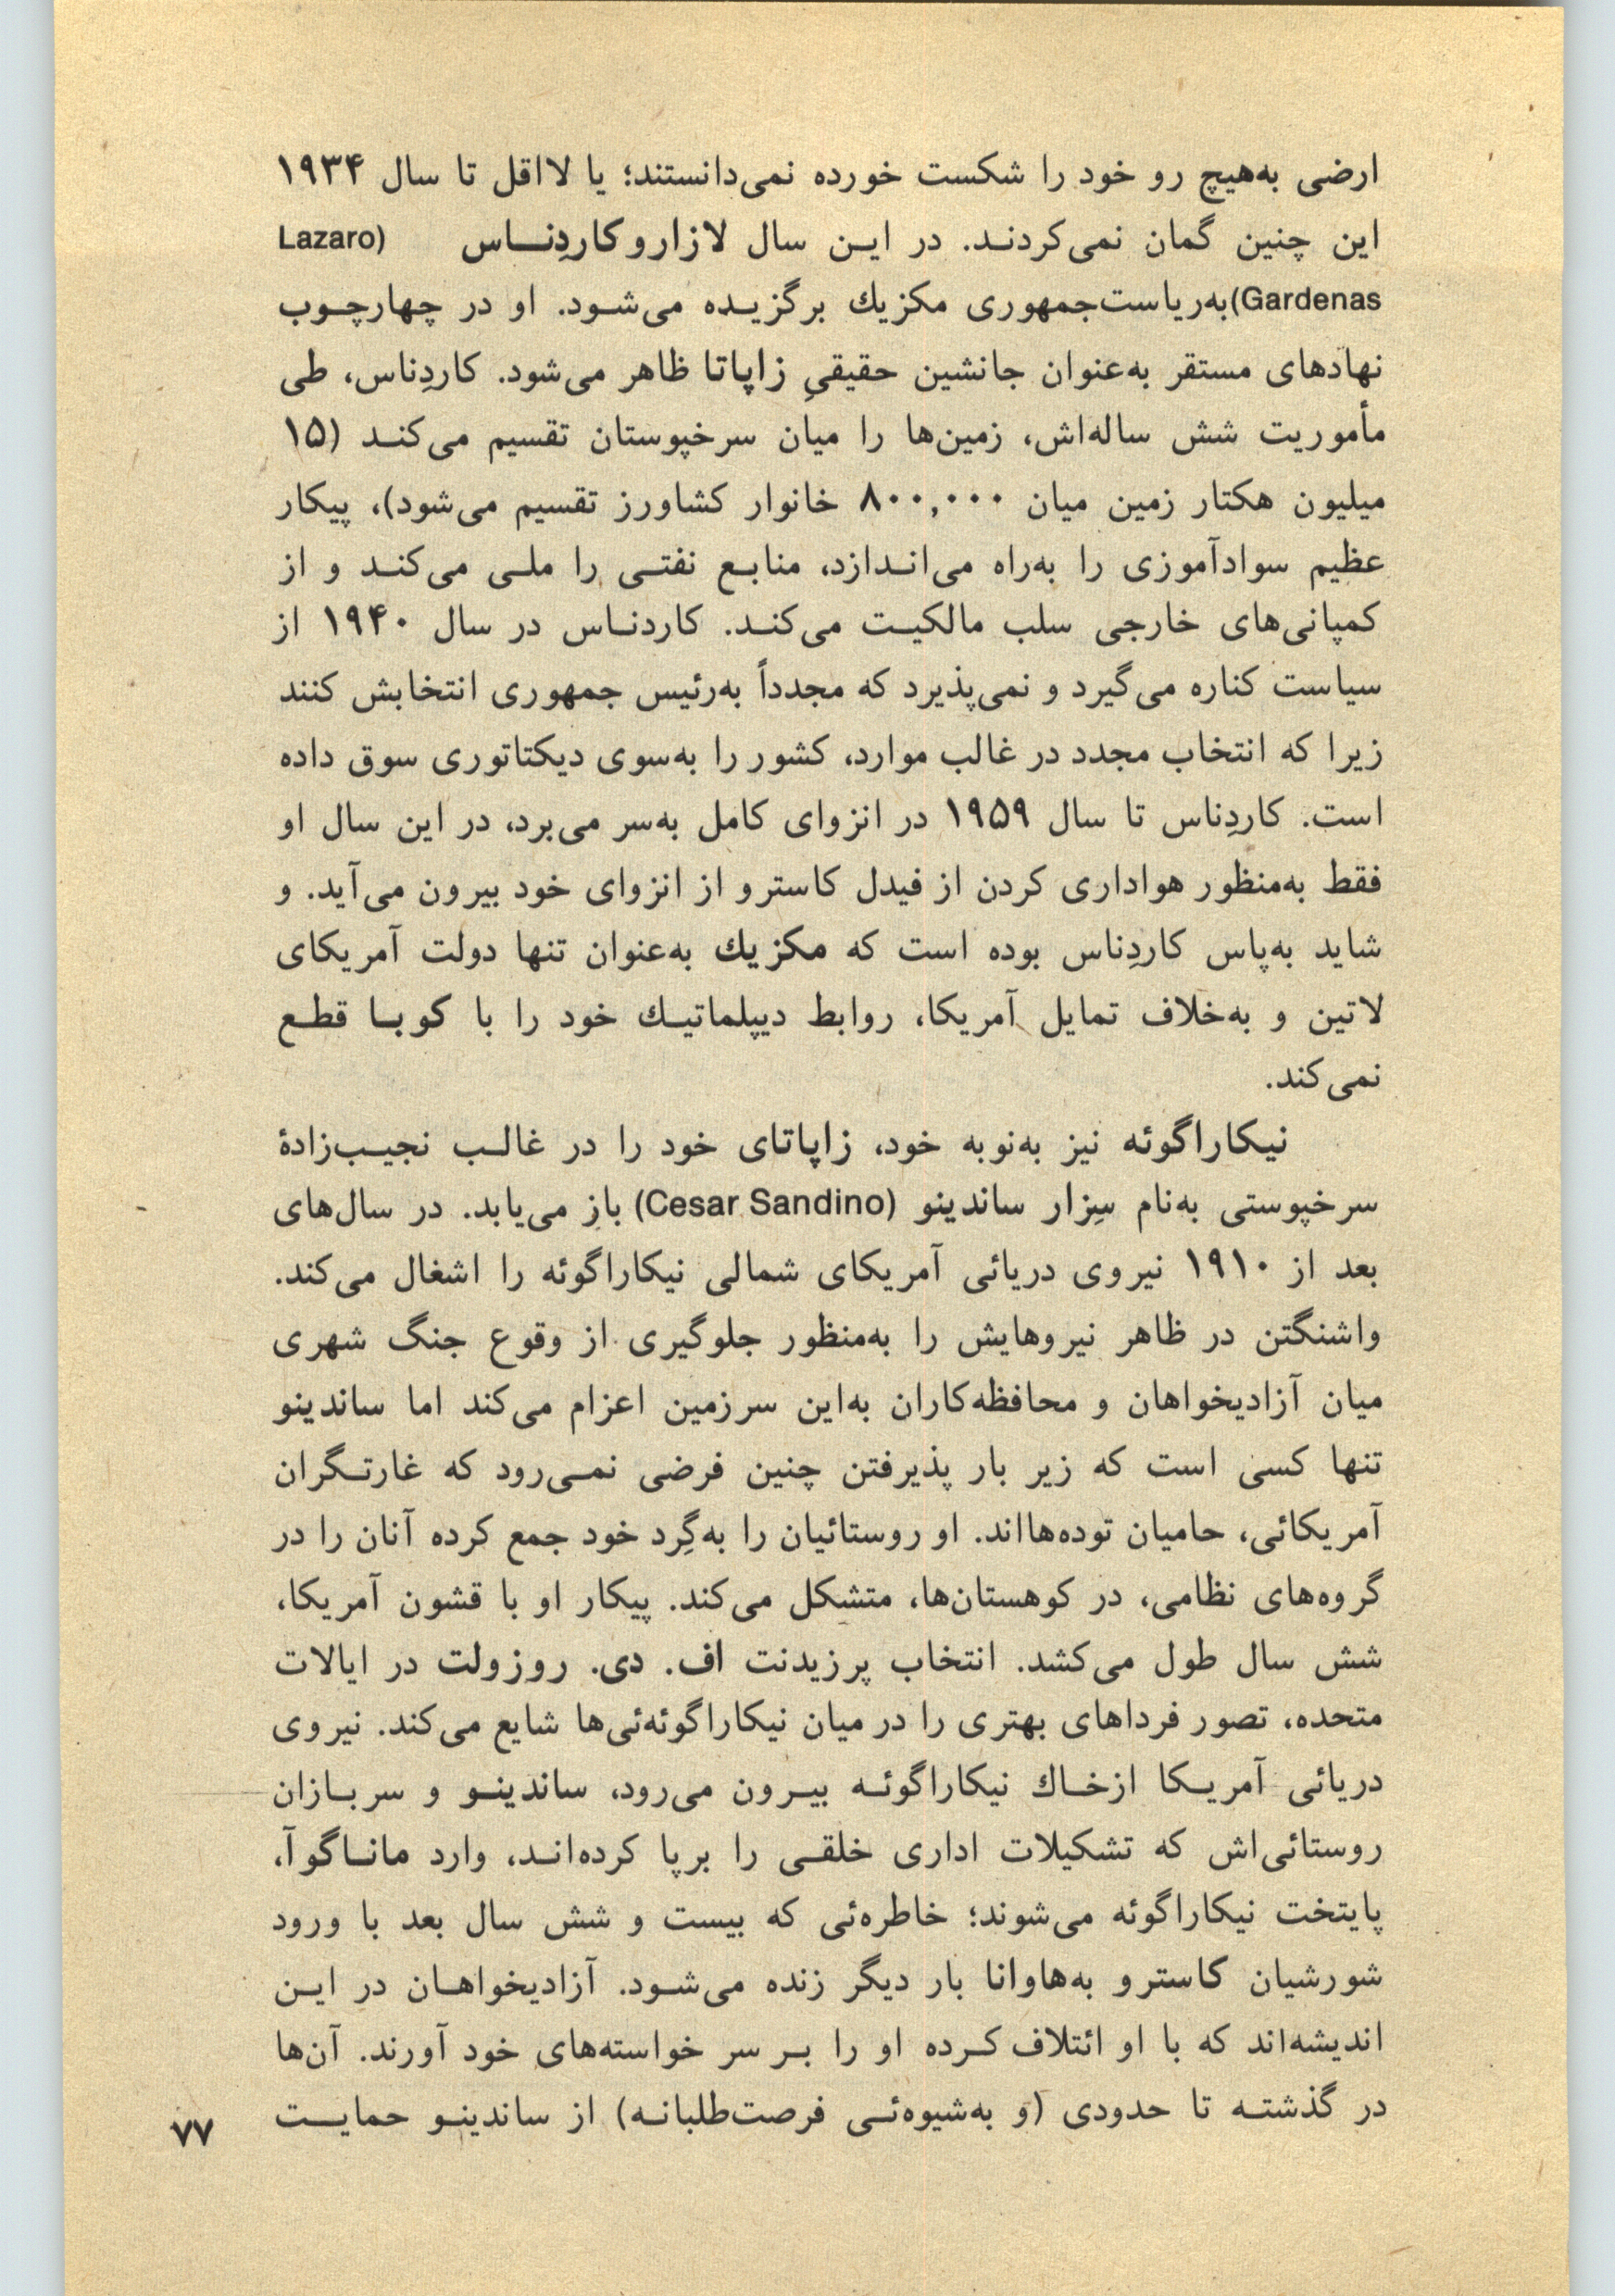 ارضی به‌هیچ رو خود را شکست خورده نمی‌دانستند؛ یا لااقل تا سال ۱۹۳۴
این چنین گمان نمی‌کردند. در این سال لازارو کاردِناس (Lazaro
Gardenas) به‌ریاست‌جمهوری مکزیك برگزیده می‌شود. او در چهارچوب
نهادهای مستقر به‌عنوان جانشین حقیقیِ زاپاتا ظاهر می‌شود. کاردِناس، طی
مأموریت شش ساله‌اش، زمین‌ها را میان سرخپوستان تقسیم می‌کند (۱۵
میلیون هکتار زمین میان ۸۰۰,۰۰۰ خانوار کشاورز تقسیم می‌شود)، پیکار
عظیم سوادآموزی را به‌راه می‌اندازد، منابع نفتی را ملی می‌کند و از
کمپانی‌های خارجی سلب مالکیت می‌کند. کاردناس در سال ۱۹۴۰ از
سیاست کناره می‌گیرد و نمی‌پذیرد که مجدداً به‌رئیس جمهوری انتخابش کنند
زیرا که انتخاب مجدد در غالب موارد، کشور را به‌سوی دیکتاتوری سوق داده
است. کاردِناس تا سال ۱۹۵۹ در انزوای کامل به‌سر می‌برد، در این سال او
فقط به‌منظور هواداری کردن از فیدل کاسترو از انزوای خود بیرون می‌آید. و
شاید به‌پاس کاردِناس بوده است که مکزیك به‌عنوان تنها دولت آمریکای
لاتین و به‌خلاف تمایل آمریکا، روابط دیپلماتیك خود را با کوبا قطع
نمی‌کند.
نیکاراگوئه نیز به‌نوبه خود، زاپاتای خود را در غالب نجیب‌زادهٔ
سرخپوستی به‌نام سِزار ساندینو (Cesar Sandino) باز می‌یابد. در سال‌های
بعد از ۱۹۱۰ نیروی دریائی آمریکای شمالی نیکاراگوئه را اشغال می‌کند.
واشنگتن در ظاهر نیروهایش را به‌منظور جلوگیری از وقوع جنگ شهری
میان آزادیخواهان و محافظه‌کاران به‌این سرزمین اعزام می‌کند اما ساندینو
تنها کسی است که زیر بار پذیرفتن چنین فرضی نمی‌رود که غارتگران
آمریکائی، حامیان توده‌هااند. او روستائیان را به‌گِرد خود جمع کرده آنان را در
گروه‌های نظامی، در کوهستان‌ها، متشکل می‌کند. پیکار او با قشون آمریکا،
شش سال طول می‌کشد. انتخاب پرزیدنت اف. دی. روزولت در ایالات
متحده، تصور فرداهای بهتری را در میان نیکاراگوئه‌ئی‌ها شایع می‌کند. نیروی
دریائی آمریکا ازخاك نیکاراگوئه بیرون می‌رود، ساندینو و سربازان
روستائی‌اش که تشکیلات اداری خلقی را برپا کرده‌اند، وارد ماناگوآ،
پایتخت نیکاراگوئه می‌شوند؛ خاطره‌ئی که بیست و شش سال بعد با ورود
شورشیان کاسترو به‌هاوانا بار دیگر زنده می‌شود. آزادیخواهان در این
اندیشه‌اند که با او ائتلاف کرده او را بر سر خواسته‌های خود آورند. آن‌ها
در گذشته تا حدودی (و به‌شیوه‌ئی فرصت‌طلبانه) از ساندینو حمایت
۷۷